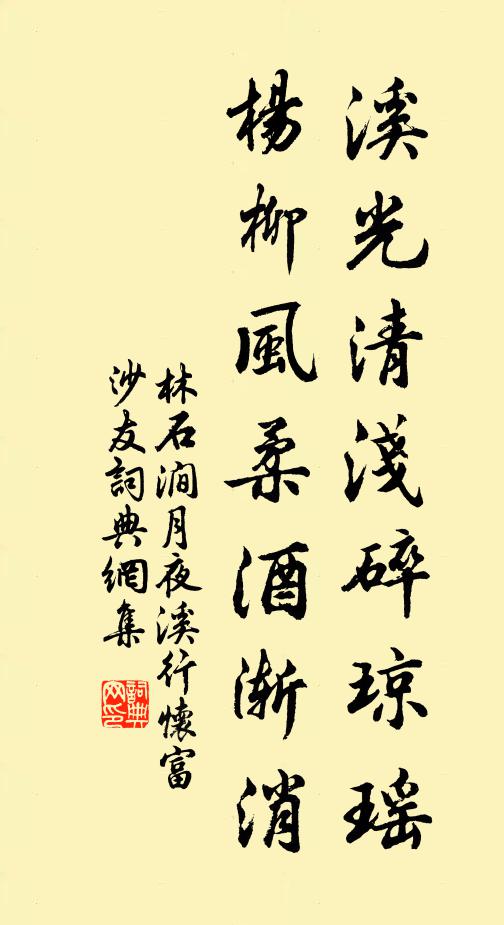 溪光清淺碎琼瑶
楊柳風柔酒漸消
林石澗月夜溪行懷富
沙友詞典網集
詞典網印